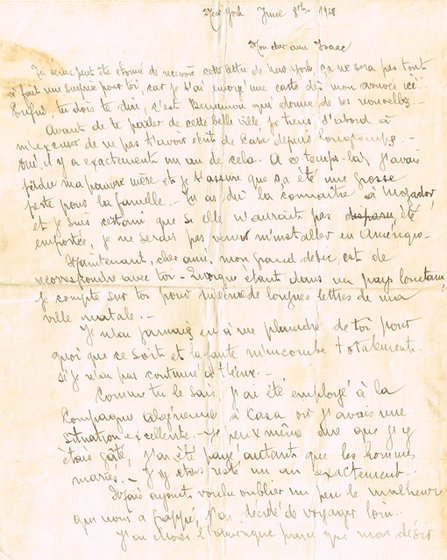 New York June 8th 1928
Mon cher ami Isaac
Tu seras peut être étonné de recevoir cette lettre de New York, ça ne sera pas tout
à fait une surprise pour toi, car je t'ai envoyé une carte dès mon arrivée ici.
Enfin, tu dois te dire, c'est Benjamin qui donne de ses nouvelles.-
Avant de te parler de cette belle ville, je tiens d'abord à
m'excuser de ne pas t'avoir écrit de Casa depuis longtemps.-
Oui, il y a exactement un an de cela. A ce temps-là, j'avais
perdu ma pauvre mère et je t'assure que ça a été une grosse
perte pour la famille.- Tu as dû la connaître à Mogador
et je suis certain que si elle n'aurait pas disparu, été
emportée, je ne serais pas venu m'installer en Amérique.-
Maintenant, cher ami, mon grand désir est de
correspondre avec toi - Lorsque étant dans un pays lointain,
je compte sur toi pour de longues lettres de ma
ville natale.-
Je n'ai jamais eu à me plaindre de toi pour
quoi que ce soit et la faute m'incombe totalement
si je n'ai pas continué à t'écrire.-
Comme tu le sais, j'ai été employé à la
Compagnie Algérienne à Casa où j'avais une
situation excellente.- Je peux même dire que j'y
étais gâté, j'ai été payé autant que les hommes
mariés.- J'y étais resté un an exactement.-
Mais ayant voulu oublier un peu le malheur
qui nous a frappé, j'ai décidé de voyager loin.
J'ai choisi l'Amérique parce que mon désir